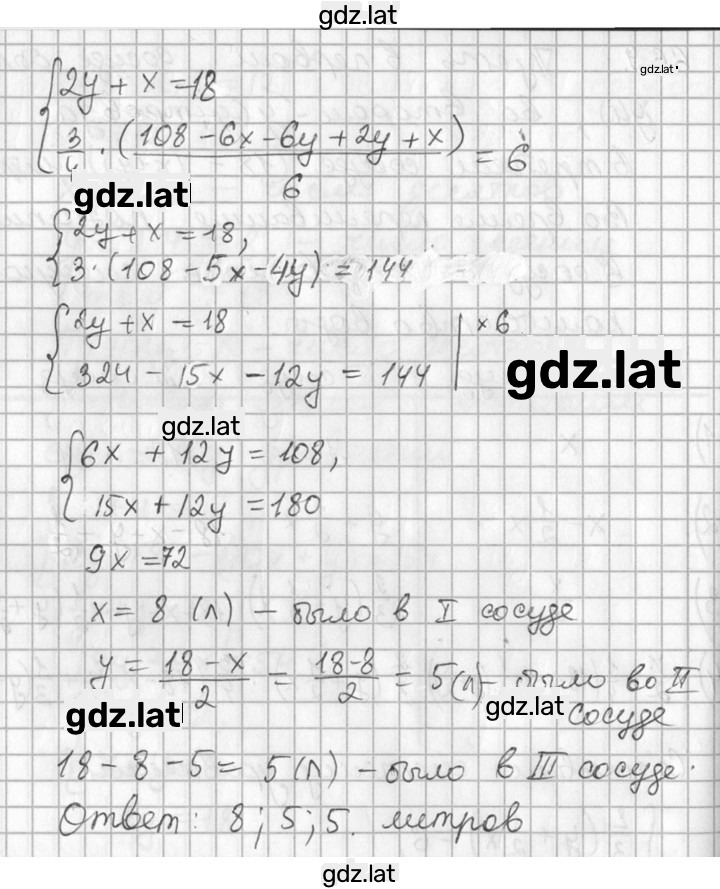 gdz.lat
gdz.lat
{2y + x = 18
3/4 · (108 - 6x - 6y + 2y + x)/6 = 6
gdz.lat
{2y + x = 18,
3 · (108 - 5x - 4y) = 144
{2y + x = 18 | × 6
324 - 15x - 12y = 144
gdz.lat
gdz.lat
{6x + 12y = 108,
15x + 12y = 180
9x = 72
x = 8 (л) - было в I сосуде
y = (18 - x)/2 = (18-8)/2 = 5(л) - было во II
gdz.lat
gdz.lat
сосуде
18 - 8 - 5 = 5 (л) - было в III сосуде.
Ответ: 8; 5; 5. литров
gdz.lat